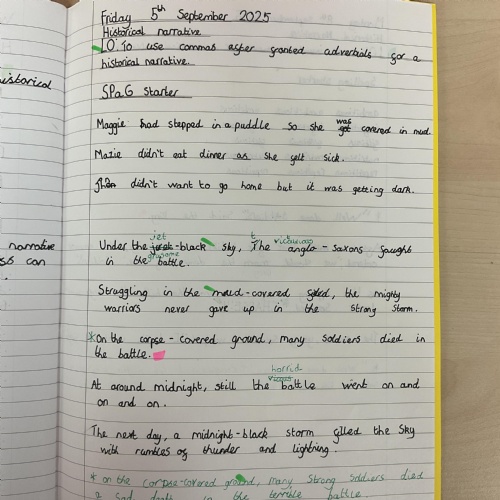 istorical
narrative
ss can
Friday 5th September 2025
Historical narrative
LO: To use commas after fronted adverbials for a
historical narrative.
SPaG Starter
Maggie had stepped in a puddle so she was got covered in mud.
Mazie didn't eat dinner as she felt sick.
didn't want to go home but it was getting dark.
jet
Under the -black sky, The victorious anglo - saxons fought
in the gruesome battle.
Struggling in the mud-covered field, the mighty
warriors never gave up in the strong storm.
*On the corpse - covered ground, many soldiers died in
the battle.
horrid
At around midnight, still the battle went on and
on and on.
The next day, a midnight-black storm filled the Sky
with rumbles of thunder and lightning.
* on the corpse-covered ground, many strong soldiers died
a sad death in the terrible battle.